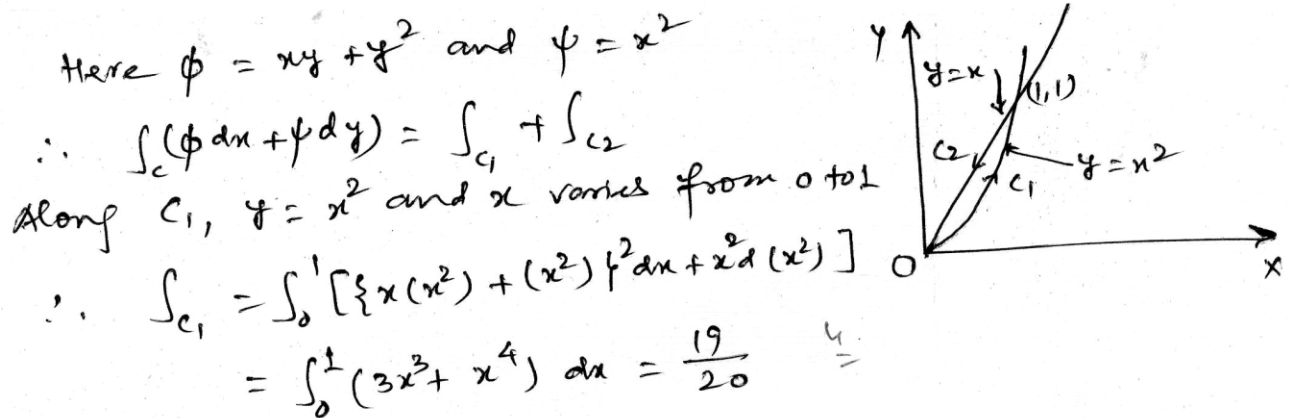 Here ϕ = xy + y² and ψ = x²
∴ ∫_C (ϕ dx + ψ dy) = ∫_C₁ + ∫_C₂
Along C₁, y = x² and x varies from 0 to 1
∴ ∫_C₁ = ∫₀¹ [{x(x²) + (x²)}² dx + x² d(x²)]
= ∫₀¹ (3x³ + x⁴) dx = 19/20
4
Y
y=x
(1,1)
C2
C₁
y=x²
O
X